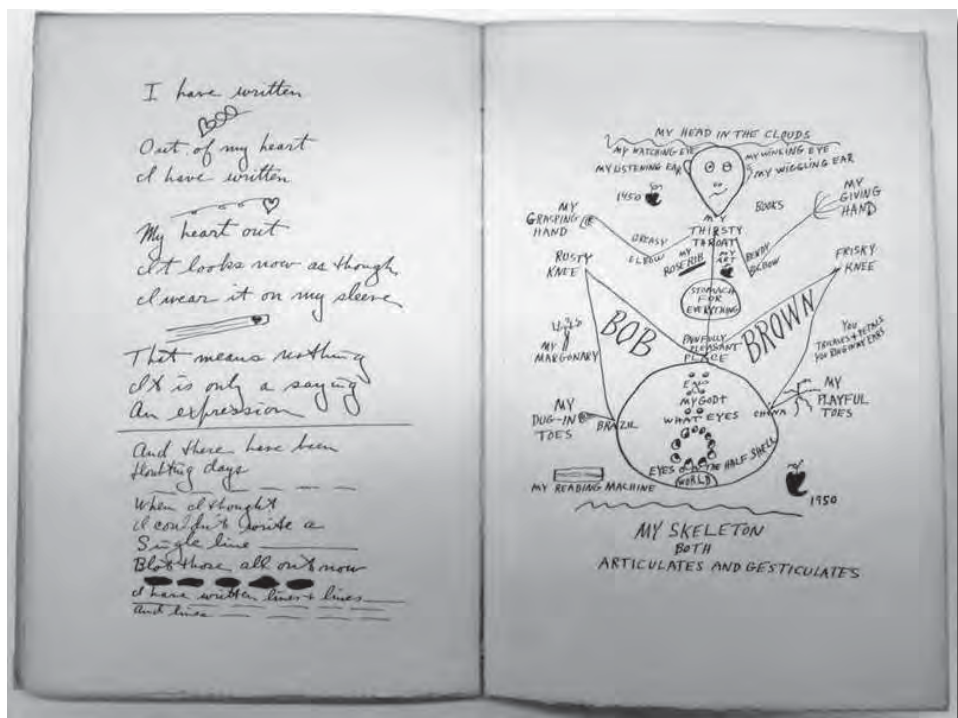 I have written
Out of my heart
I have written
My heart out
It looks now as though
I wear it on my sleeve
That means nothing
It is only a saying
An expression
And there have been
doubting days
When I thought
I couldn't write a
Single line
Blot those all out now
I have written lines + lines
and lines
MY HEAD IN THE CLOUDS
MY WATCHING EYE
MY WINKING EYE
MY LISTENING EAR
MY WIGGLING EAR
1450
BOOKS
MY
GIVING
HAND
MY
GRASPING
HAND
MY
THIRSTY
THROAT
GREASY
ELBOW
MY
ROSE RIB
MY
ART
BENDY
ELBOW
RUSTY
KNEE
FRISKY
KNEE
STOMACH
FOR
EVERYTHING
BOB
BROWN
PAINFULLY
PLEASANT
PLACE
MY
MARGONARY
YOU
TRICKLES + PETALS
YOU RING IN MY EARS
MY
DUG-IN
TOES
BRAZIL
CHINA
MY
PLAYFUL
TOES
MY GOD!
WHAT EYES
EYES ON THE HALF SHELL
WORLD
MY READING MACHINE
1950
MY SKELETON
BOTH
ARTICULATES AND GESTICULATES